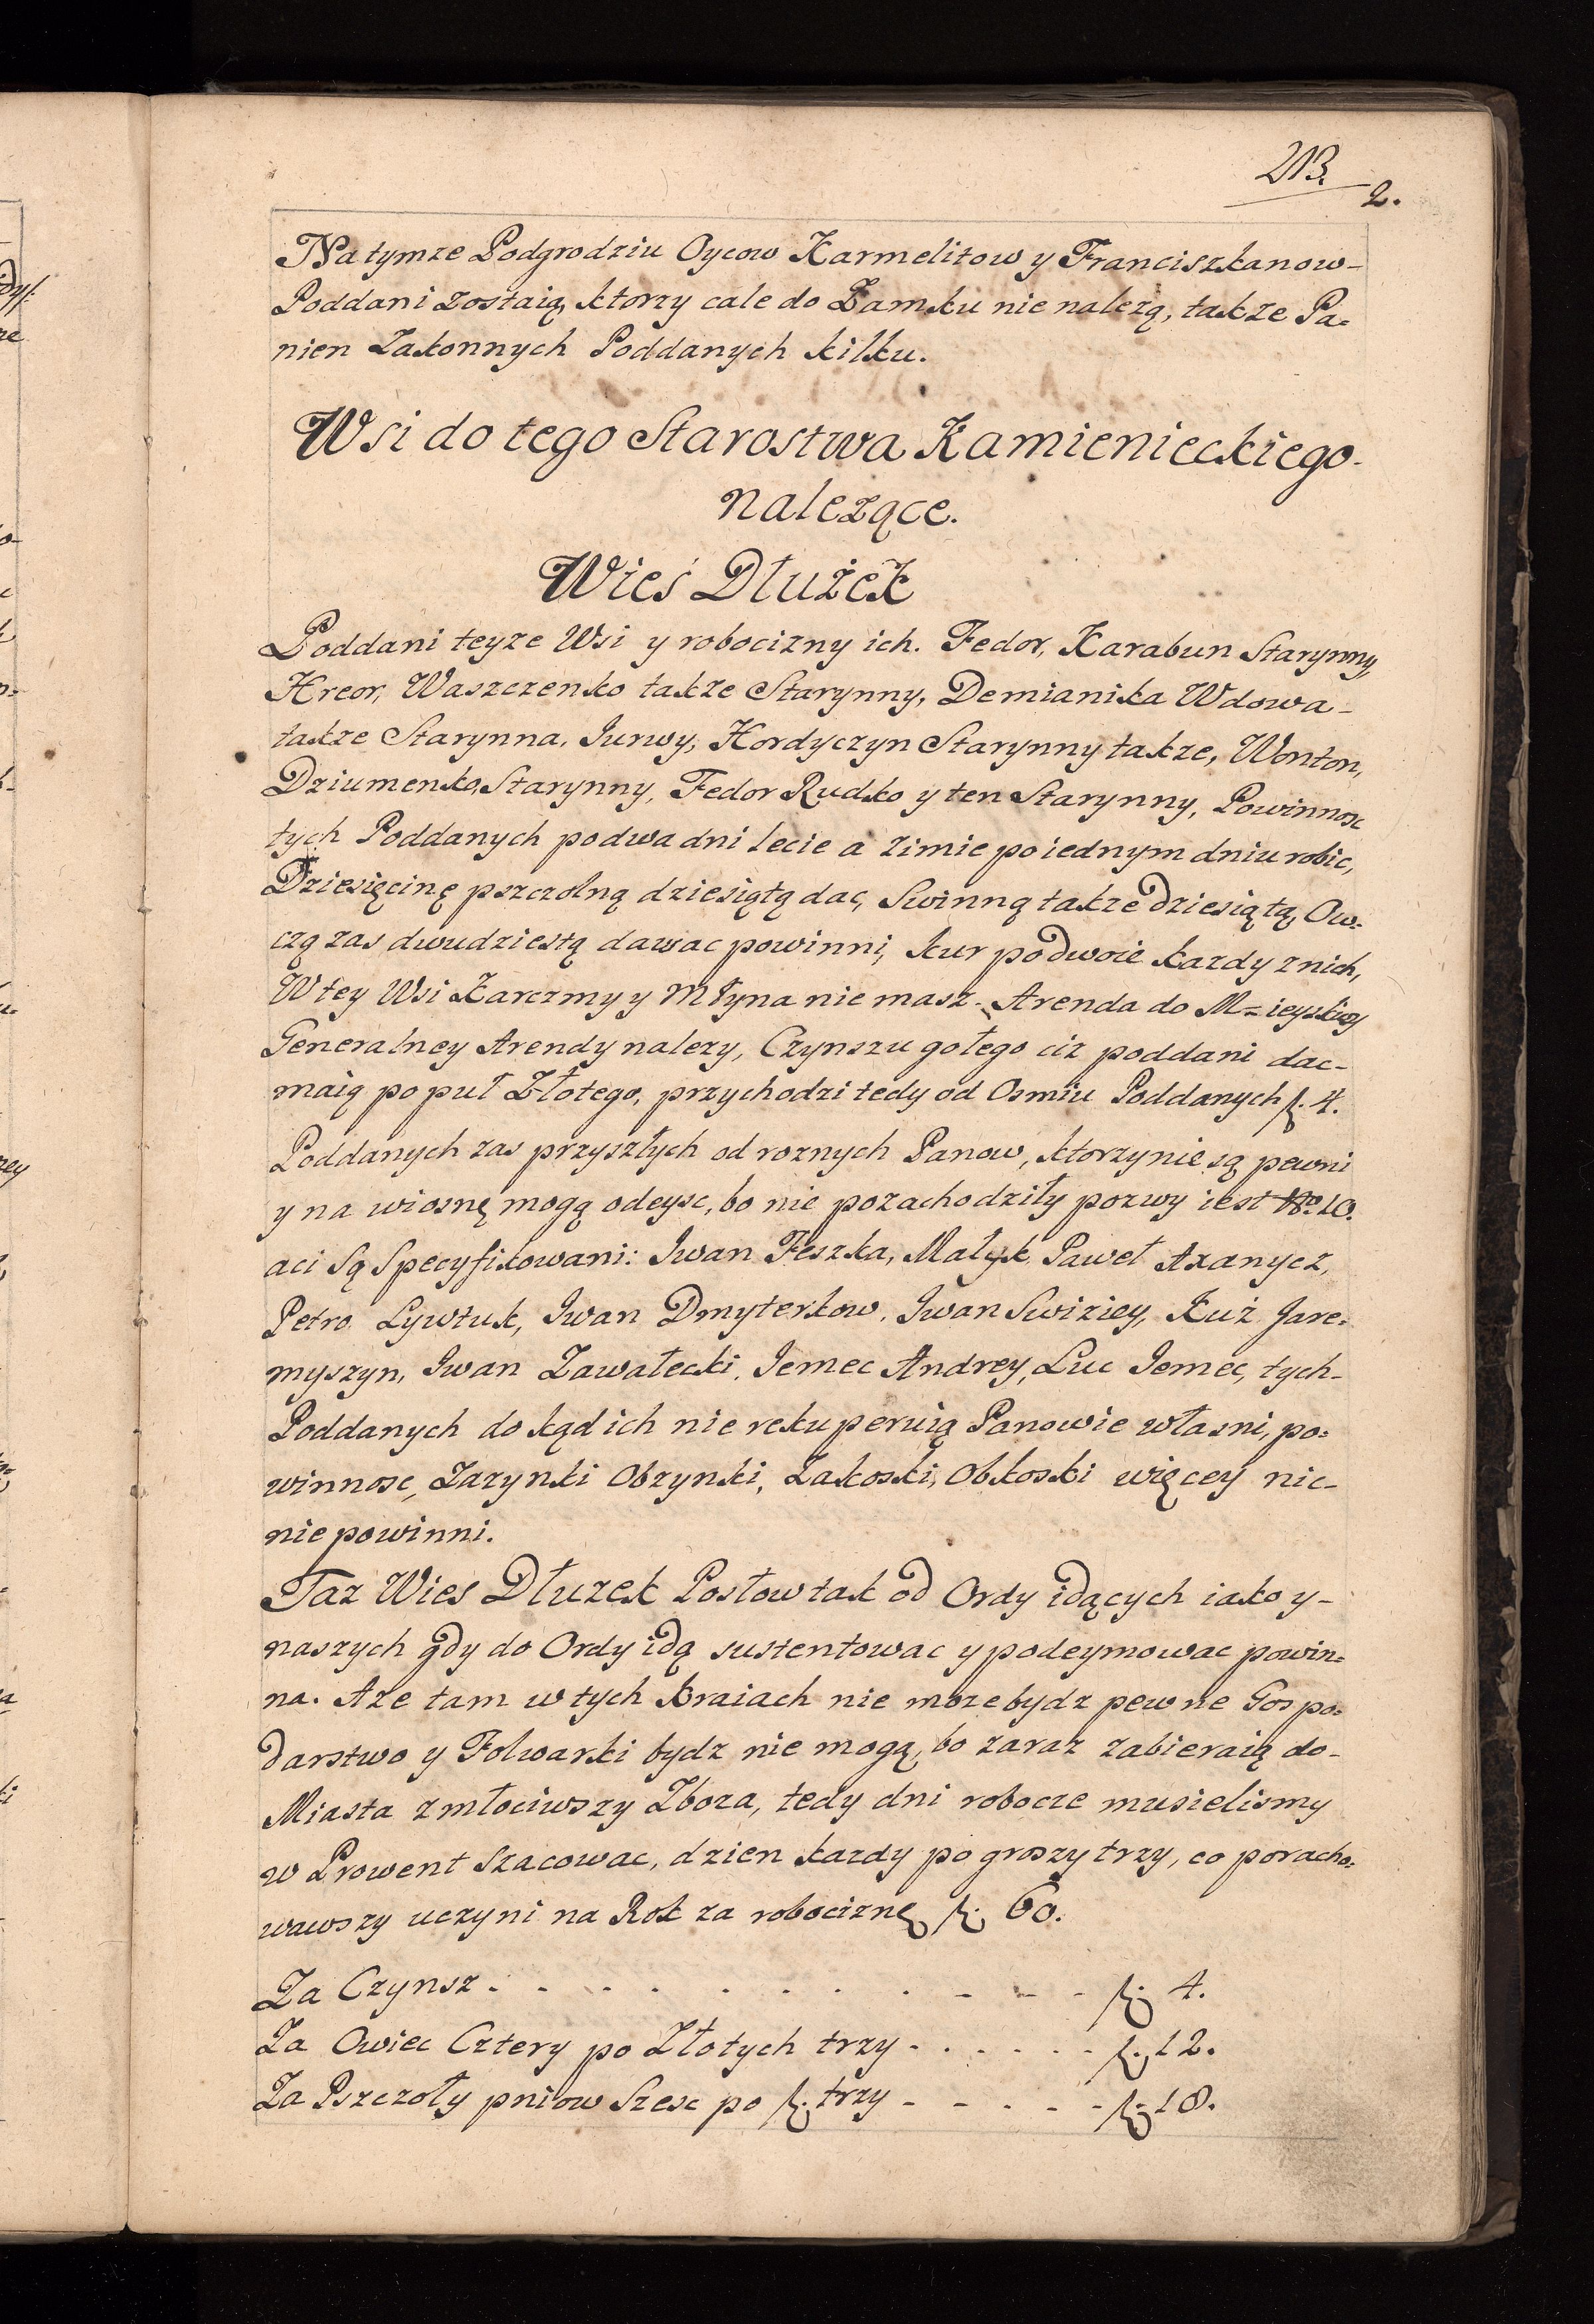 213.
2.
Na tymze Podgrodziu Oycow Karmelitow y Franciszkanow-
Poddani zostaią, ktorzy cale do Zamku nie nalezą, takze Pa=
nien Zakonnych Poddanych kilku.
Wsi do tego Starostwa Kamienieckiego.
nalezące.
Wieś Dłużek
Poddani teyze Wsi y robocizny ich. Fedor, Karabun Starynny,
Hreor, Waszczenko takze Starynny, Demianika Wdowa-
takze Starynna. Hordyczyn Starynny takze, Wonton,
Dziumenko, Starynny, Fedor Rudko y ten Starynny, Powinnosc
tych Poddanych po dwa dni lecie a zimie po iednym dniu robic,
Dziesięcinę pszczolną dziesiątą dac, Swinną takze dziesiątą, Ow=
czą zas dwudziestą dawac powinni, kur po dwoie kazdy z nich,
W tey Wsi Karczmy y Młyna nie masz. Arenda do M=ieyskiey
Generalney Arendy nalezy, Czynszu gołego ciz poddani dac-
maią po puł Złotego, przychodzi tedy od Osmiu Poddanych f. 4.
Poddanych zas przyszłych od roznych Panow, ktorzy nie są pewni
y na wiosnę mogą odeysc, bo nie pozachodziły pozwy iest No. 10.
a ci są specyfikowani: Iwan Feszka, Małyk, Paweł Axanycz,
Petro Lywtuk, Iwan Dmyterkow, Iwan Swiziey, Kuż Jare=
myszyn, Iwan Zawałecki, Jemec Andrey, Luc Jemec, tych-
Poddanych do kąd ich nie rekuperuią Panowie własni, po=
winnosc, Zazynki Obzynki, Zakoski, Obkoski więcey nic-
nie powinni.
Taz Wies Dłuzek Posłow tak od Ordy idących iako y-
naszych gdy do Ordy idą sustentowac y podeymowac powin=
na. A ze tam w tych kraiach nie moze bydz pewne Gospo=
darstwo y Folwarki bydz nie mogą, bo zaraz zabieraią do-
Miasta zmłociwszy Zboza, tedy dni robocze musielismy
w Prowent szacowac, dzien kazdy po groszy trzy, co poracho=
wawszy uczyni na Rok za robociznę f. 60.
Za Czynsz . - - - - - - - - - - f. 4.
Za Owiec Cztery po Złotych trzy - - - - - - f. 12.
Za Pszczoły pniow Szesc po f. trzy - - - - - f. 18.